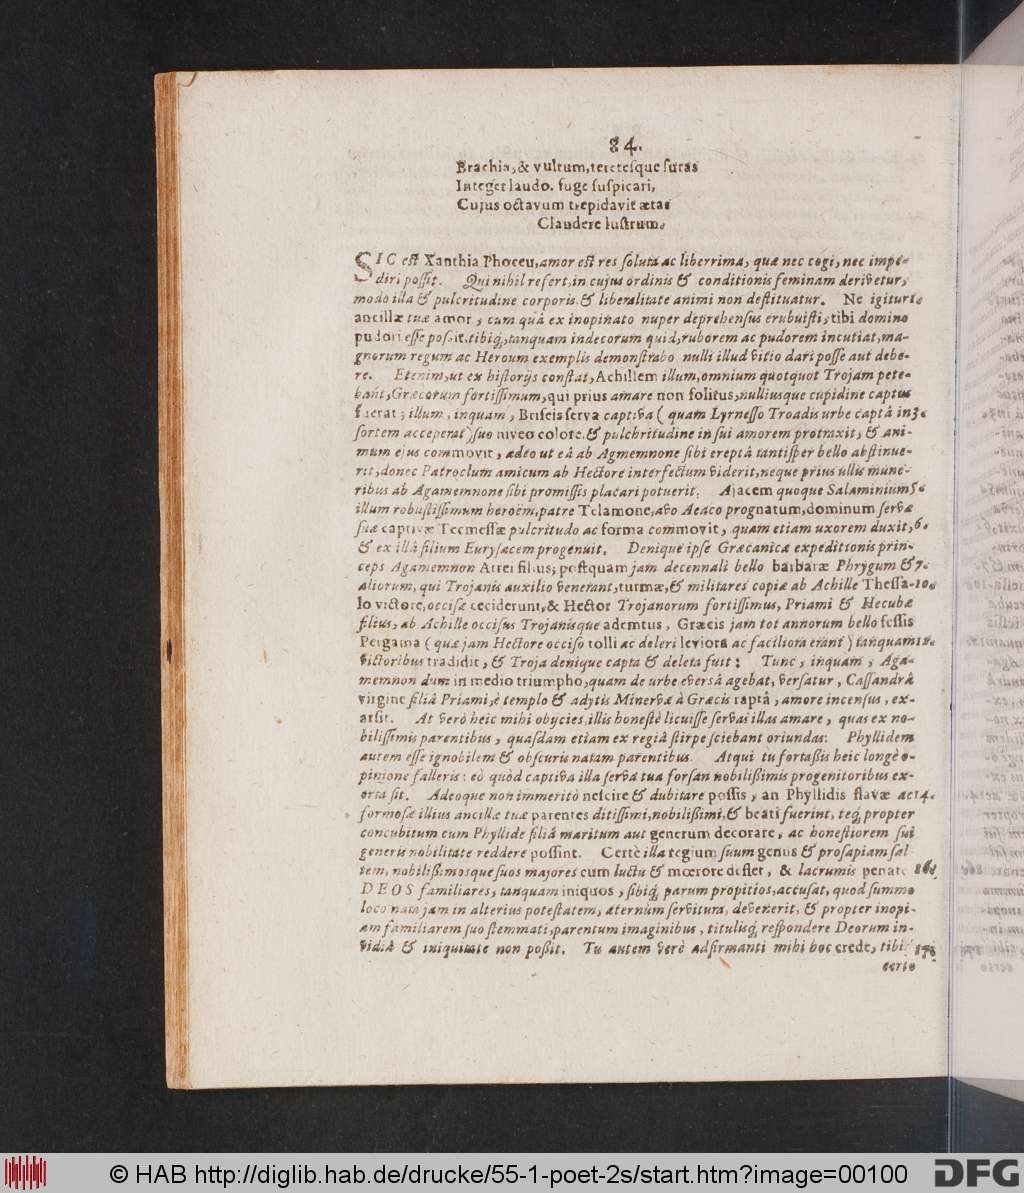 84.
Brachia, & vultum, teretesque suras
Integer laudo. fuge suspicari,
Cujus octavum trepidavit ætas
Claudere lustrum.
SIC est Xanthia Phoceu, amor est res soluta ac liberrima, quæ nec cogi, nec impe-
diri possit. Qui nihil refert, in cujus ordinis & conditionis feminam derivetur,
modo illa & pulcritudine corporis & liberalitate animi non destituatur. Ne igitur 1.
ancillæ tuæ amor, cum quâ ex inopinato nuper deprehensus erubuisti, tibi domino
pudori esse possit, tibiq́, tanquam indecorum quid, ruborem ac pudorem incutiat, ma-
gnorum regum ac Heroum exemplis demonstrabo nulli illud vitio dari posse aut debe-
re. Etenim, ut ex historijs constat, Achillem illum, omnium quotquot Trojam pete-
bant, Græcorum fortissimum, qui prius amare non solitus, nulliusque cupidine captus
fuerat; illum, inquam, Briseis serva captiva (quam Lyrnesso Troadis urbe captâ in 3.
sortem acceperat) suo niveo colore & pulchritudine in sui amorem protraxit, & ani-
mum ejus commovit, adeo ut eâ ab Agmemnone sibi ereptâ tantisper bello abstinue-
rit, donec Patroclum amicum ab Hectore interfectum viderit, neque prius ullis mune-
ribus ab Agamemnone sibi promissis placari potuerit. Ajacem quoque Salaminium 5.
illum robustissimum heroëm, patre Telamone, avo Aeaco prognatum, dominum servæ
suæ captivæ Tecmessæ pulcritudo ac forma commovit, quam etiam uxorem duxit, 6.
& ex illâ filium Eurysacem progenuit. Denique ipse Græcanicæ expeditionis prin-
ceps Agamemnon Atrei filius; postquam jam decennali bello barbaræ Phrygum & 7.
aliorum, qui Trojanis auxilio venerant, turmæ, & militares copiæ ab Achille Thessa- 10.
lo victore, occisæ ceciderunt, & Hector Trojanorum fortissimus, Priami & Hecubæ
filius, ab Achille occisus Trojanisque ademtus, Græcis jam tot annorum bello fessis
Pergama (quæ jam Hectore occiso tolli ac deleri leviora ac faciliora erant) tanquam 12.
victoribus tradidit, & Troja denique capta & deleta fuit: Tunc, inquam, Aga-
memnon dum in medio triumpho, quam de urbe eversâ agebat, versatur, Cassandrâ
virgine filiâ Priami, è templo & adytis Minervæ à Græcis raptâ, amore incensus, ex-
arsit. At verò heic mihi obijcies, illis honestè licuisse servas illas amare, quas ex no-
bilissimis parentibus, quasdam etiam ex regiâ stirpe sciebant oriundas: Phyllidem
autem esse ignobilem & obscuris natam parentibus. Atqui tu fortaßis heic longè o-
pinione falleris: eò quòd captiva illa serva tua forsan nobilißimis progenitoribus ex-
orta sit. Adeoque non immeritò nescire & dubitare possis, an Phyllidis flavæ ac 14.
formosæ illius ancillæ tuæ parentes ditissimi, nobilißimi, & beati fuerint, teq́ propter
concubitum cum Phyllide filiâ maritum aut generum decorare, ac honestiorem sui
generis nobilitate reddere possint. Certè illa regium suum genus & prosapiam sal
tem, nobilißimosque suos majores cum luctu & mœrore deflet, & lacrumis penate 16.
DEOS familiares, tanquam iniquos, sibiq́ parum propitios, accusat, quod summo
loco nata jam in alterius potestatem, æternùm servitura, devenerit, & propter inopi-
am familiarem suo stemmati, parentum imaginibus, titulisq́ respondere Deorum in-
vidiâ & iniquitate non poßit. Tu autem verè adfirmanti mihi hoc crede, tibi 17.
certo
© HAB http://diglib.hab.de/drucke/55-1-poet-2s/start.htm?image=00100
DFG